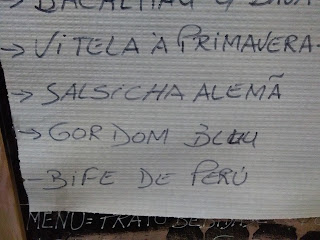 → BACALHAU
→ VITELA À PRIMAVERA -
→ SALSICHA ALEMÃ
→ GORDOM BLUU
- BIFE DE PERÚ
MENU = PRATO